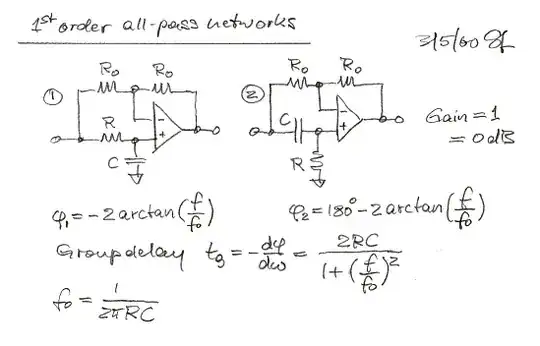 1st order all-pass networks
3/5/00 SL
① R₀ R₀ R C - +
② R₀ R₀ C R - +
Gain = 1
= 0dB
φ₁ = -2 arctan(f/f₀)
φ₂ = 180° - 2 arctan(f/f₀)
Group delay tg = -dφ/dω = 2RC/(1+(f/f₀)²)
f₀ = 1/(2πRC)